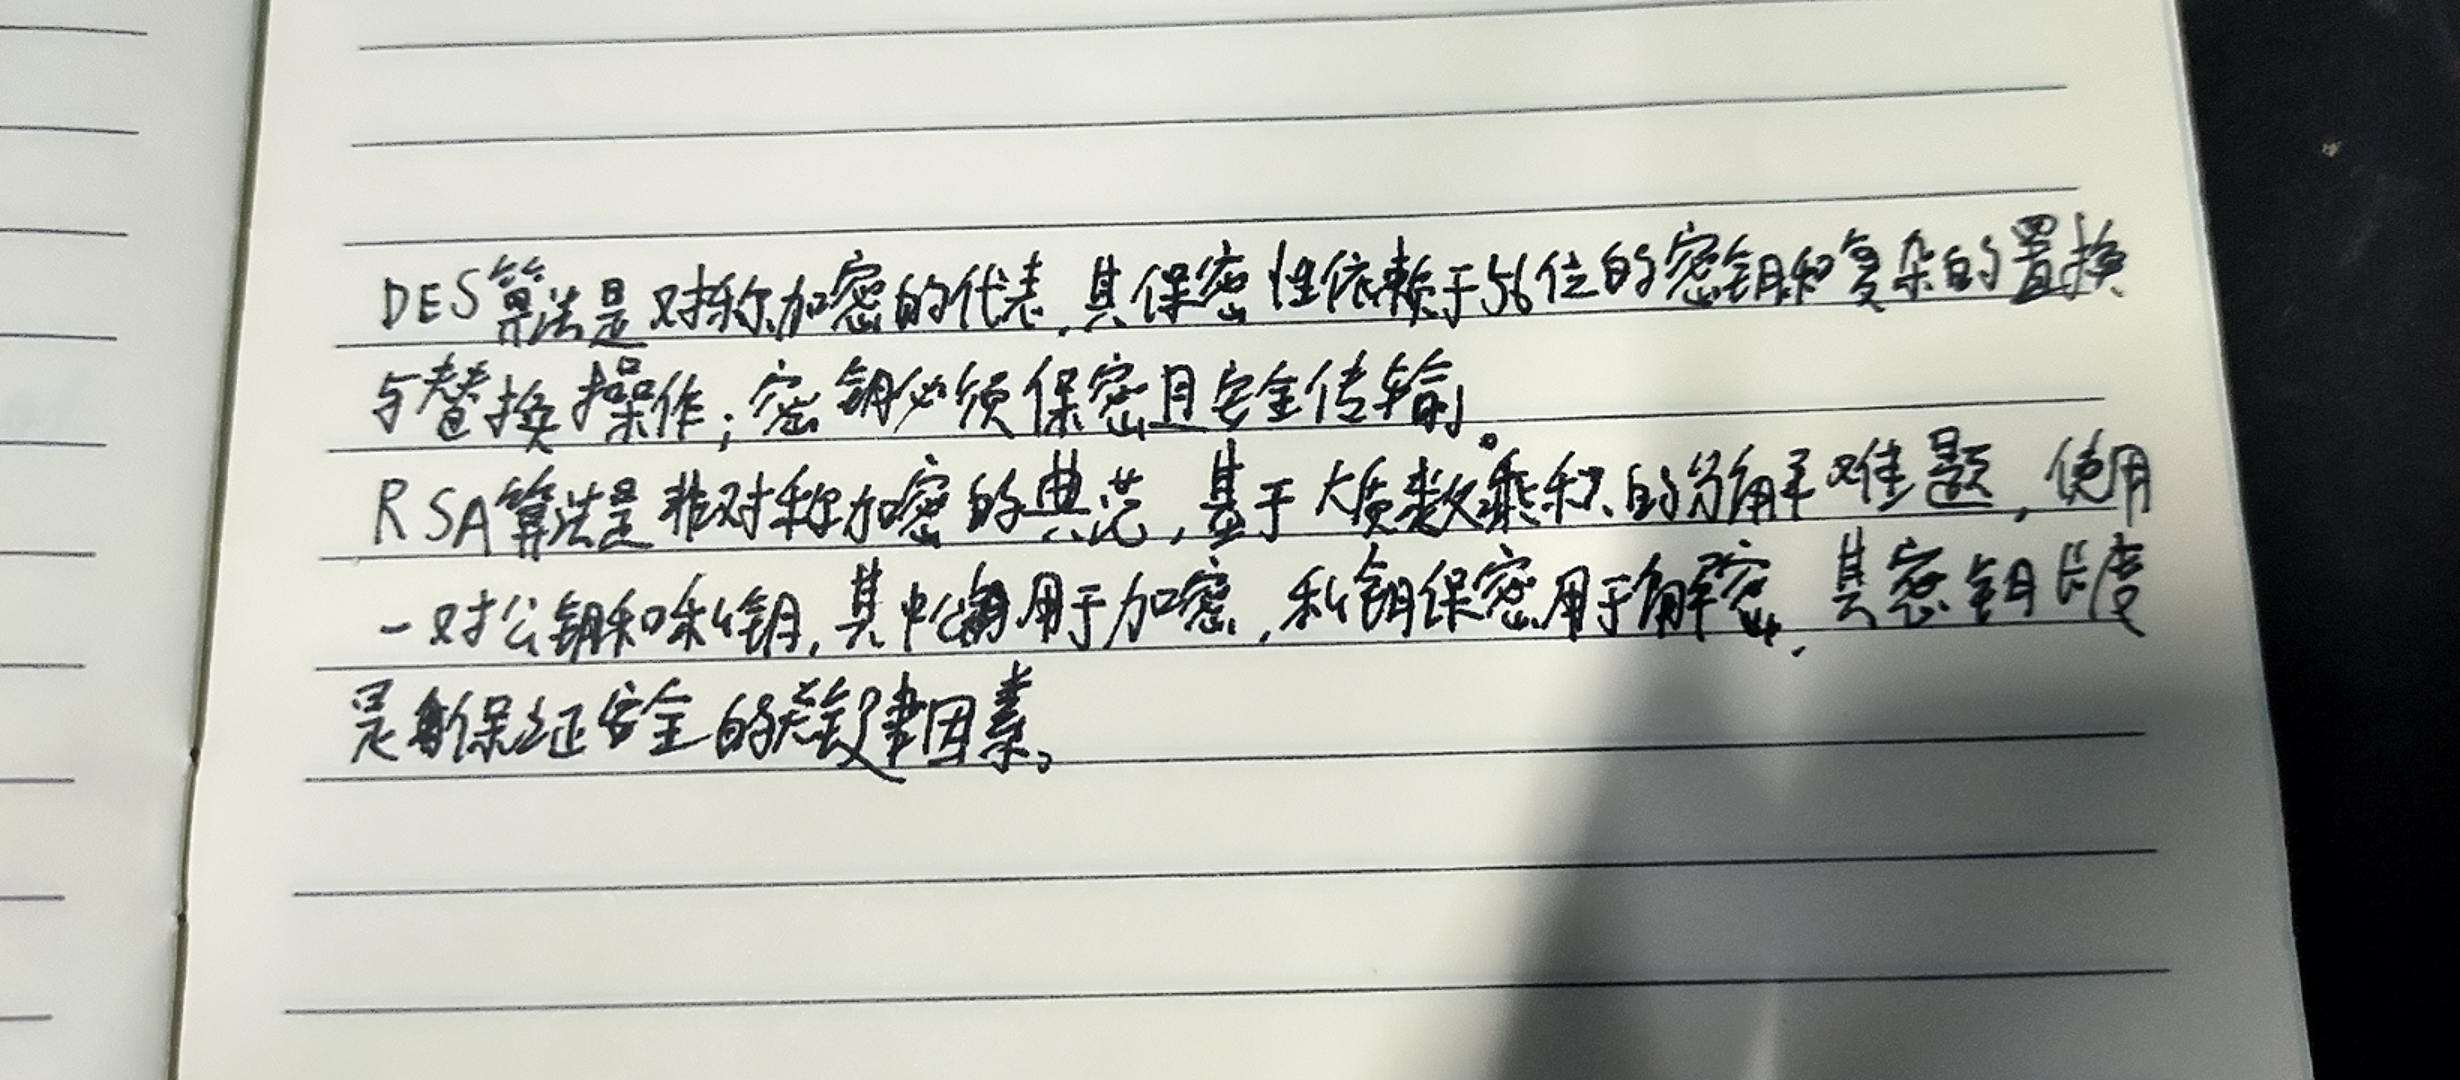 DES算法是对称加密的代表,其保密性依赖于56位的密钥和复杂的置换
与替换操作;密钥必须保密且安全传输。
RSA算法是非对称加密的典范,基于大质数乘积的分解难题,使用
一对公钥和私钥,其中公钥用于加密,私钥保密用于解密,其密钥长度
是保证安全的关键因素。